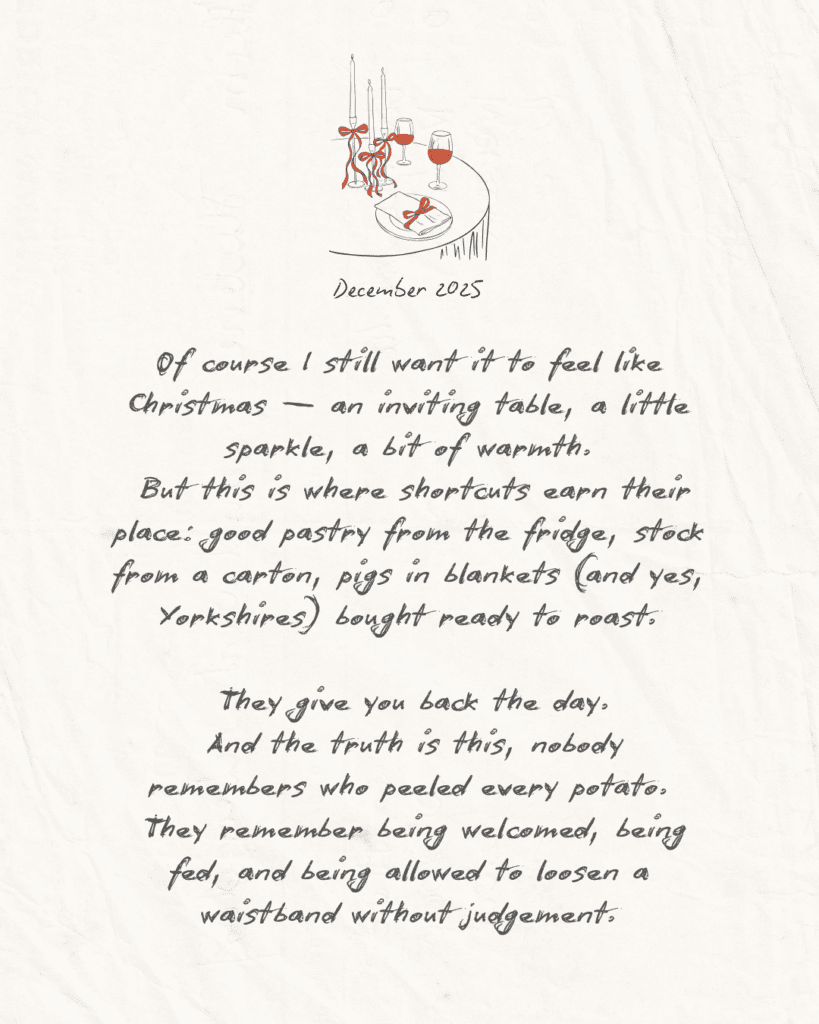 December 2025
Of course I still want it to feel like
Christmas — an inviting table, a little
sparkle, a bit of warmth.
But this is where shortcuts earn their
place: good pastry from the fridge, stock
from a carton, pigs in blankets (and yes,
Yorkshires) bought ready to roast.
They give you back the day.
And the truth is this, nobody
remembers who peeled every potato.
They remember being welcomed, being
fed, and being allowed to loosen a
waistband without judgement.